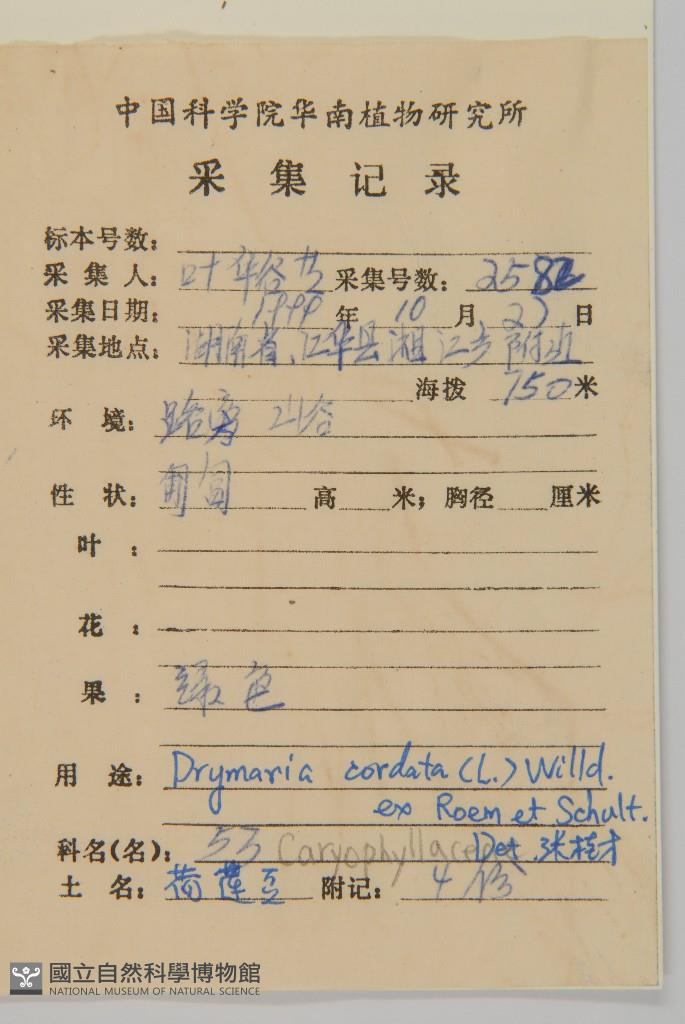 中国科学院华南植物研究所
采集记录
标本号数：
采集人：叶华谷 采集号数：2582
采集日期：1999年10月27日
采集地点：湖南省、江华县湘江乡附近
海拨 750米
环境：路旁 山谷
性状： 高 米；胸径 厘米
叶：
花：
果：绿色
用途：Drymaria cordata (L.) Willd.
ex Roem et Schult.
科名(名)：53 Caryophyllaceae Det. 张桂才
土名：荷莲豆 附记：4份
國立自然科學博物館
NATIONAL MUSEUM OF NATURAL SCIENCE